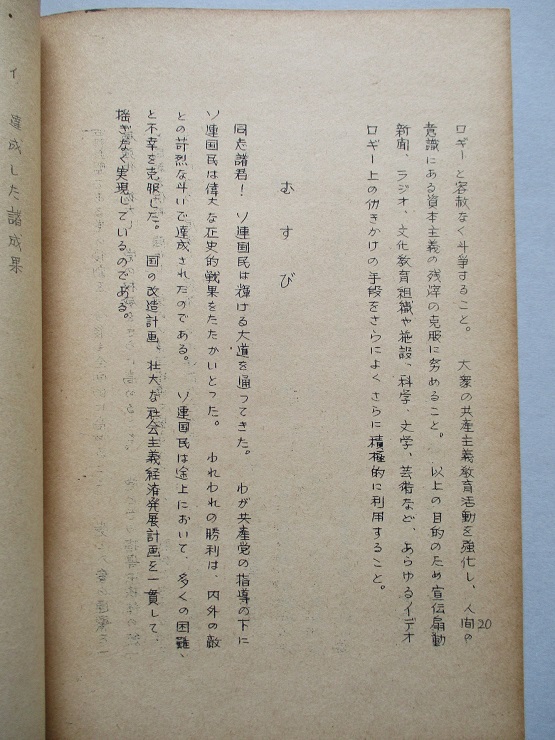 ロギーと容赦なく斗争すること。　大衆の共産主義教育活動を強化し、人間の
意識にある資本主義の残滓の克服に努めること。　以上の目的のため宣伝扇動
新聞、ラジオ、文化教育組織や施設、科学、文学、芸術など、あらゆるイデオ
ロギー上の仂きかけの手段をさらによく、さらに積極的に利用すること。
むすび
同志諸君！　ソ連国民は輝ける大道を通ってきた。　わが共産党の指導の下に
ソ連国民は偉大な歴史的戦果をたたかいとった。　われわれの勝利は、内外の敵
との苛烈な斗いで達成されたのである。　ソ連国民は途上において、多くの困難、
と不幸を克服した。　国の改造計画、壮大な社会主義経済発展計画を一貫して、
揺ぎなく実現しているのである。
20
イ　達成した諸成果